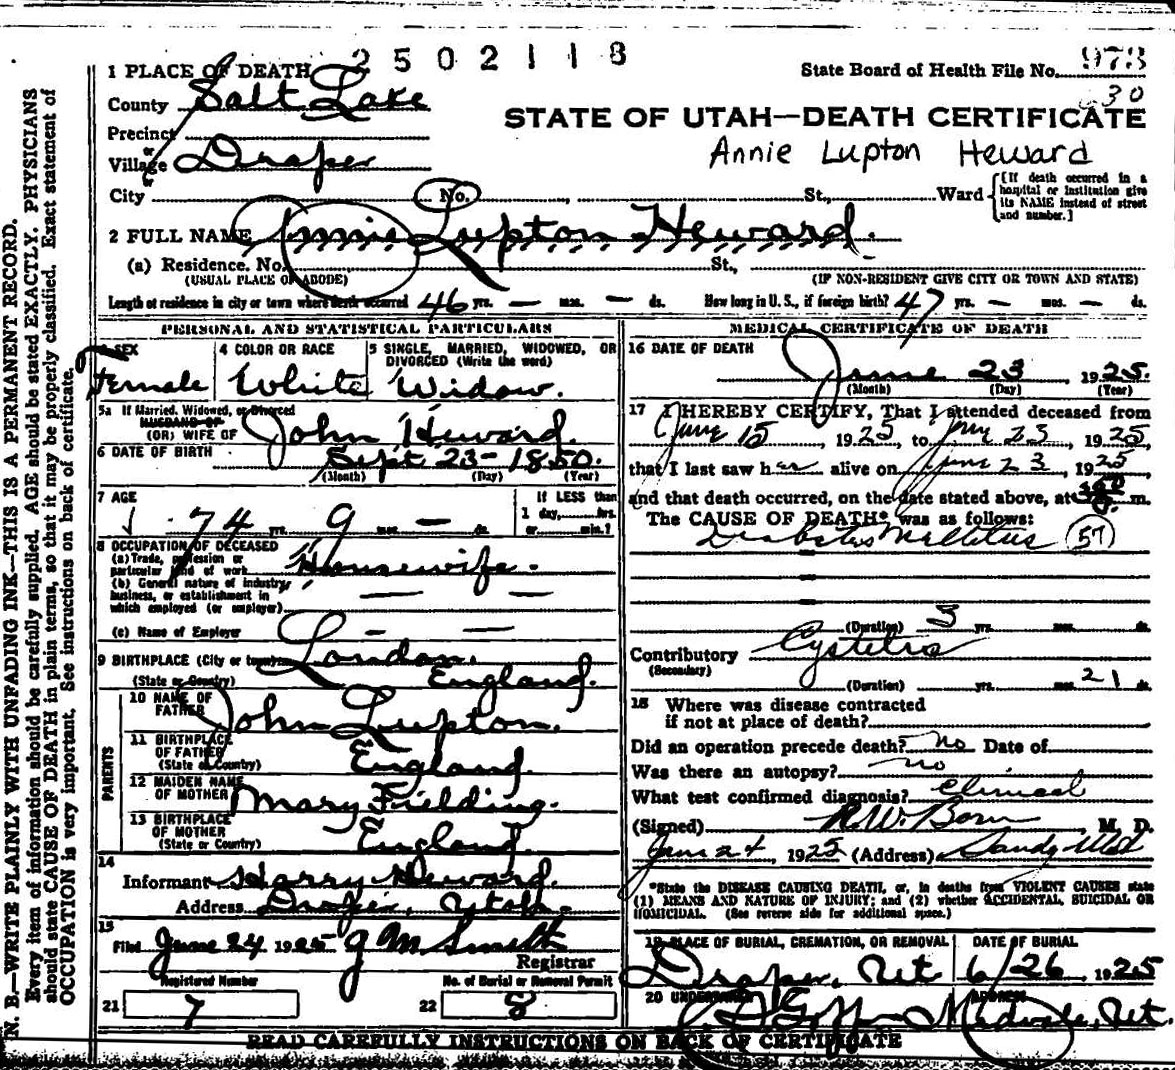 2502118
State Board of Health File No. 973
30
1 PLACE OF DEATH
County Salt Lake
STATE OF UTAH—DEATH CERTIFICATE
Precinct
or
Village Draper
Annie Lupton Heward
or
City No. St., Ward
[If death occurred in a hospital or institution give its NAME instead of street and number.]
2 FULL NAME Annie Lupton Heward.
(a) Residence. No. St.,
(USUAL PLACE OF ABODE) (IF NON-RESIDENT GIVE CITY OR TOWN AND STATE)
Length of residence in city or town where death occurred 46 yrs. — mos. — ds. How long in U. S., if foreign birth? 47 yrs. — mos. — ds.
PERSONAL AND STATISTICAL PARTICULARS
3 SEX
Female
4 COLOR OR RACE
White
5 SINGLE, MARRIED, WIDOWED, OR DIVORCED (Write the word)
Widow.
5a If Married, Widowed, or Divorced
HUSBAND OF
(OR) WIFE OF John Heward.
6 DATE OF BIRTH Sept 23-1850.
(Month) (Day) (Year)
7 AGE
74 yrs. 9 mos. — ds.
If LESS than
1 day, hrs.
or min.?
8 OCCUPATION OF DECEASED
(a) Trade, profession or
particular kind of work Housewife.
(b) General nature of industry,
business, or establishment in
which employed (or employer) — —
(c) Name of Employer — —
9 BIRTHPLACE (City or town) London.
(State or Country) England.
PARENTS
10 NAME OF
FATHER John Lupton.
11 BIRTHPLACE
OF FATHER
(State or Country) England.
12 MAIDEN NAME
OF MOTHER Mary Fielding.
13 BIRTHPLACE
OF MOTHER
(State or Country) England.
14
Informant Harry Heward.
Address Draper, Utah.
15
Filed June 24 1925 J M Smith
Registrar
Registered Number
21 7
No. of Burial or Removal Permit
22 8
MEDICAL CERTIFICATE OF DEATH
16 DATE OF DEATH
June 23 1925.
(Month) (Day) (Year)
17 I HEREBY CERTIFY, That I attended deceased from
June 15, 1925, to June 23, 1925
that I last saw her alive on June 23, 1925
and that death occurred, on the date stated above, at m.
The CAUSE OF DEATH* was as follows:
Diabetes Mellitus 57
(Duration) 3 yrs. mos. ds.
Contributory Cystetis
(Secondary)
(Duration) yrs. mos. 21 ds.
18 Where was disease contracted
if not at place of death?
Did an operation precede death? no Date of
Was there an autopsy? no
What test confirmed diagnosis? Clinical
(Signed) M. D.
June 24, 1925 (Address) Sandy Utah
*State the DISEASE CAUSING DEATH, or, in deaths from VIOLENT CAUSES state
(1) MEANS AND NATURE OF INJURY; and (2) whether ACCIDENTAL, SUICIDAL OR
HOMICIDAL. (See reverse side for additional space.)
19 PLACE OF BURIAL, CREMATION, OR REMOVAL
Draper, Ut
DATE OF BURIAL
6/26, 1925
20 UNDERTAKER
ADDRESS
Midvale, Ut.
READ CAREFULLY INSTRUCTIONS ON BACK OF CERTIFICATE
N. B.—WRITE PLAINLY WITH UNFADING INK—THIS IS A PERMANENT RECORD.
Every item of information should be carefully supplied. AGE should be stated EXACTLY. PHYSICIANS
should state CAUSE OF DEATH in plain terms, so that it may be properly classified. Exact statement of
OCCUPATION is very important. See instructions on back of certificate.